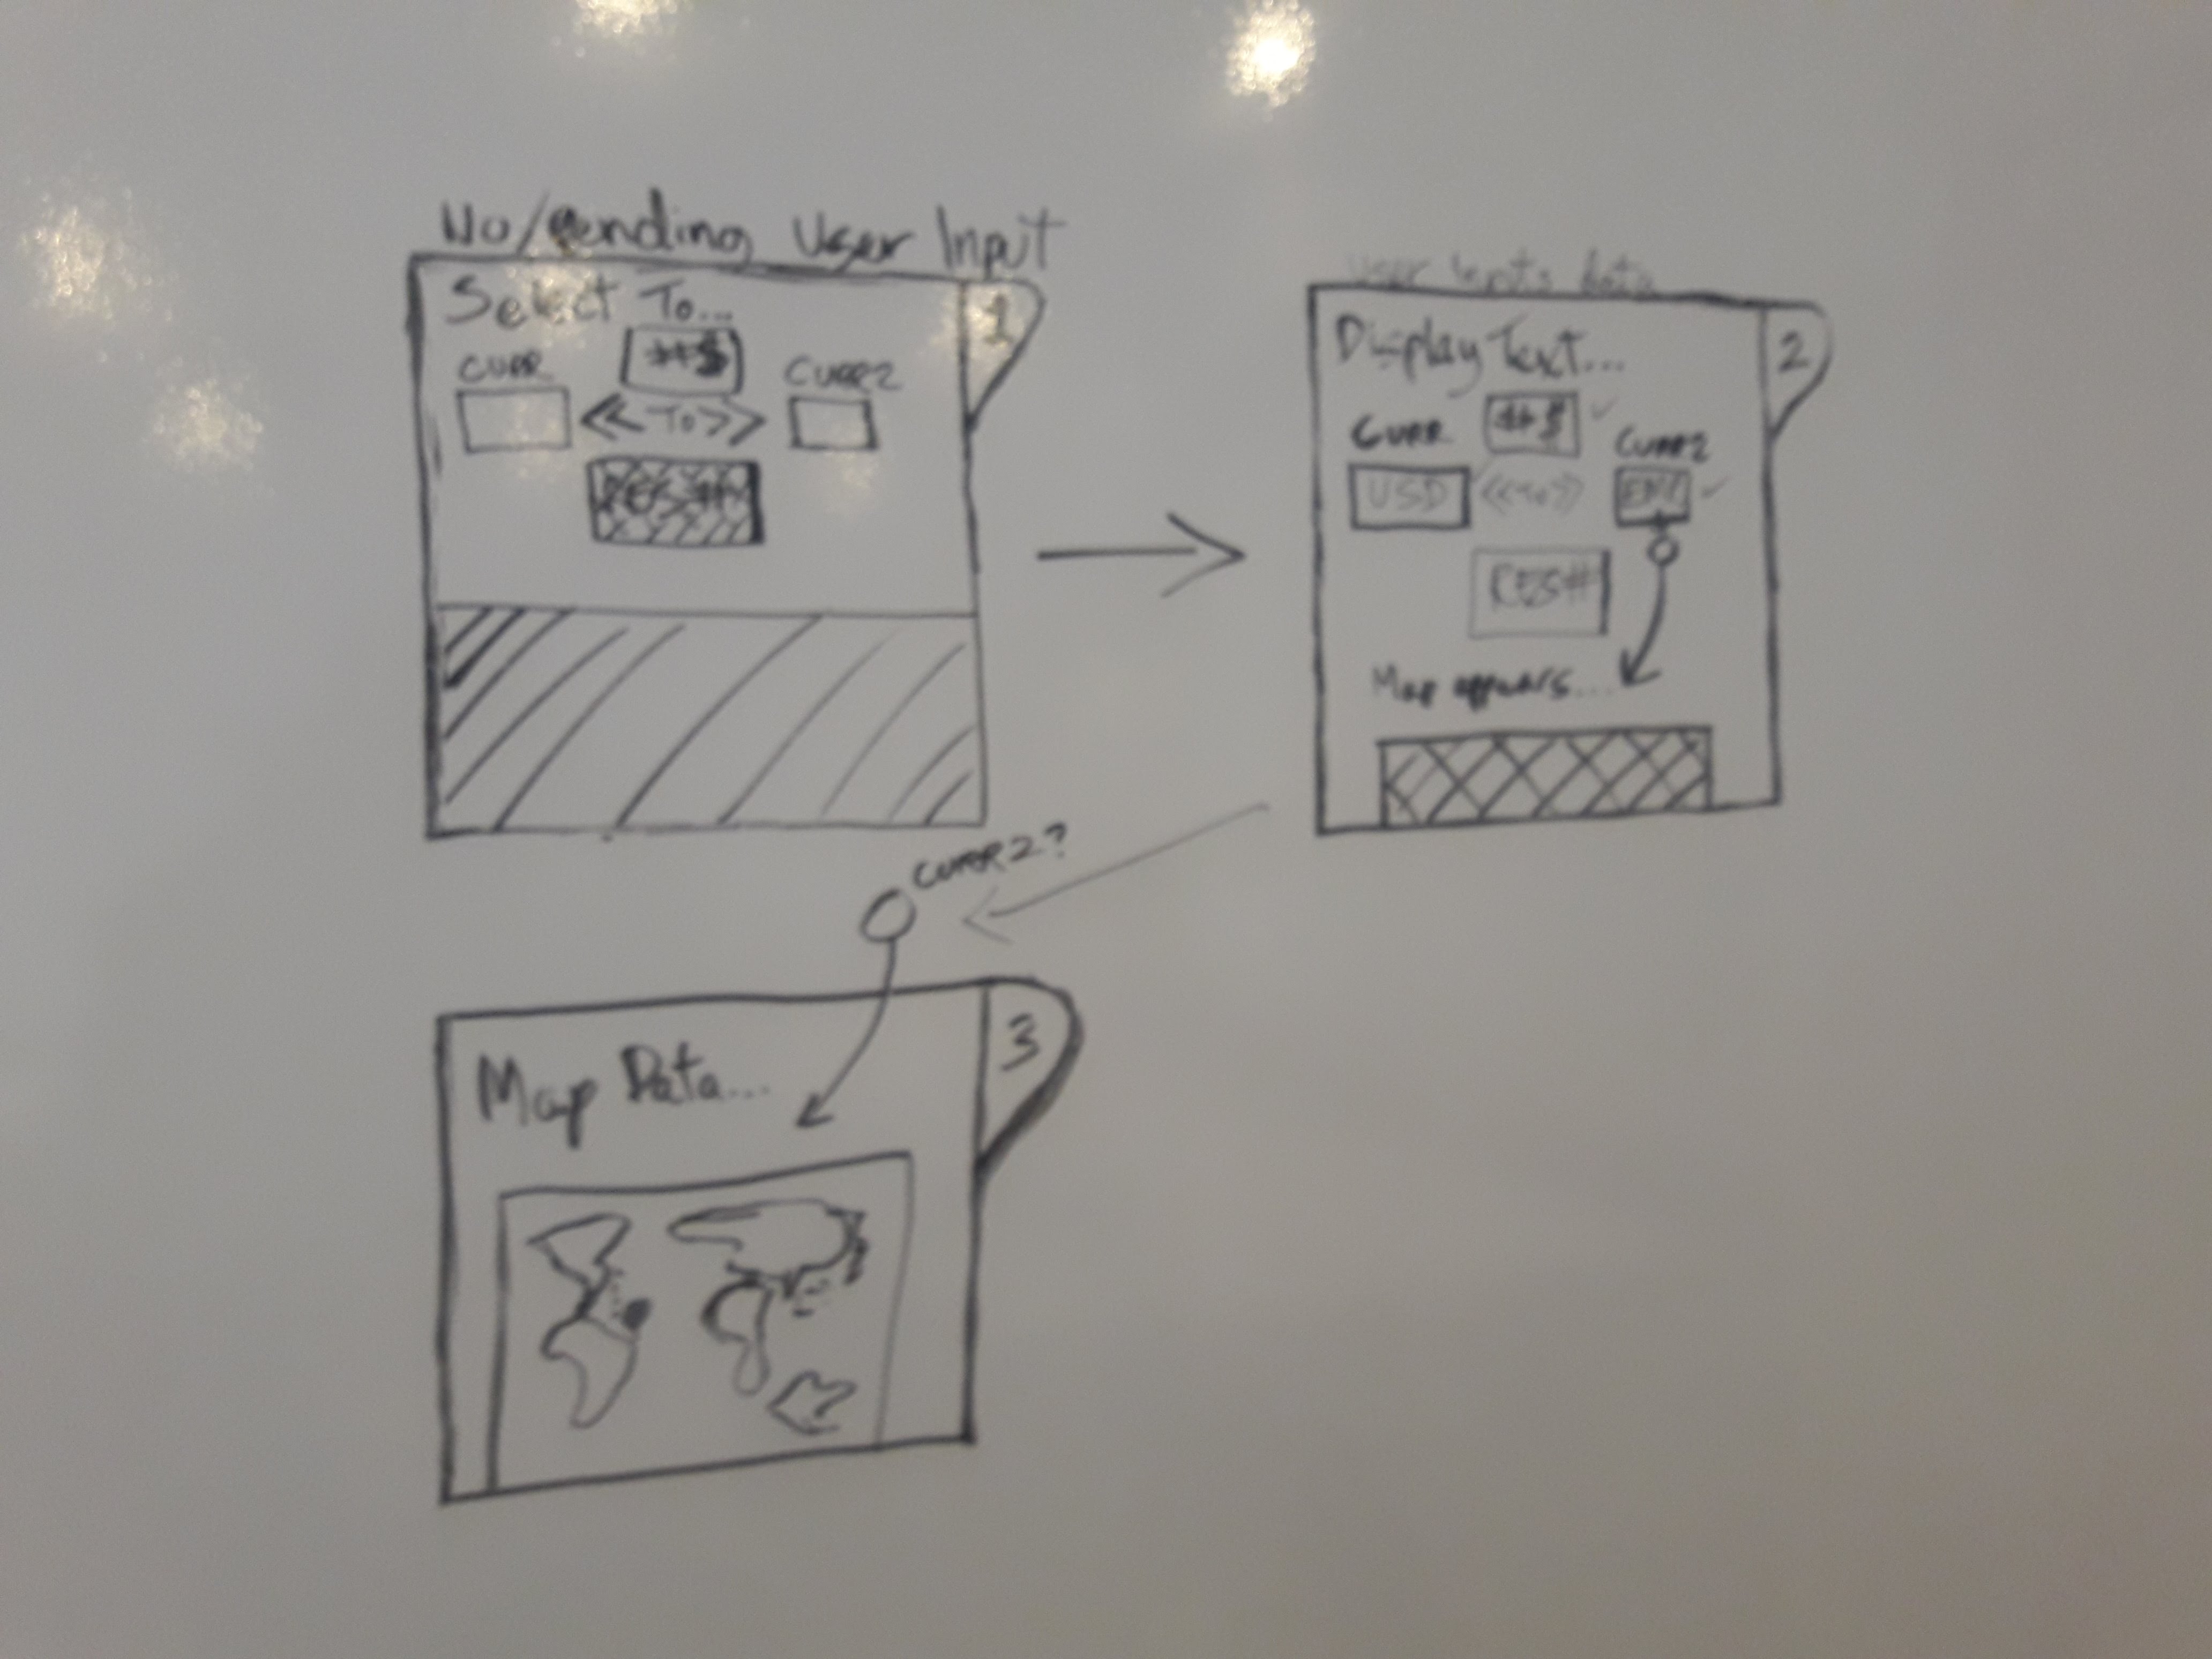 No/Pending User Input
1
Select To...
##$
CURR
CURR2
<< To >>
RES#
User inputs data
2
Display Text...
##$ ✓
CURR
CURR2
USD
<<To>>
✓
RES#
Map appears...
CURR2?
3
Map Data...